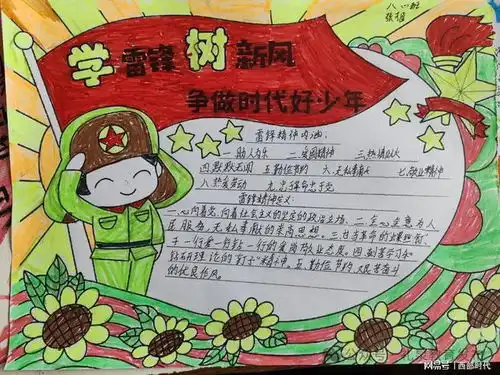 八(一)班
学雷锋树新风
争做时代好少年
雷锋精神内涵:
一.助人为乐 二.爱国精神 三.热情似火
四.默默无闻 五.勤俭节约 六.无私奉献 七.敬业精神
八.热爱劳动 九.忠于革命忠于党
雷锋精神含义
一.心向着党、向着社会主义的坚定的政治立场。二.全心全意为人
民服务、无私奉献的崇高思想。三.甘当革命的螺丝钉、
干一行爱一行钻一行的爱岗敬业态度。四.刻苦学习和
钻研理论的"钉子"精神。五.勤俭节约、艰苦奋斗
的优良作风。
网易号 | 西部时代